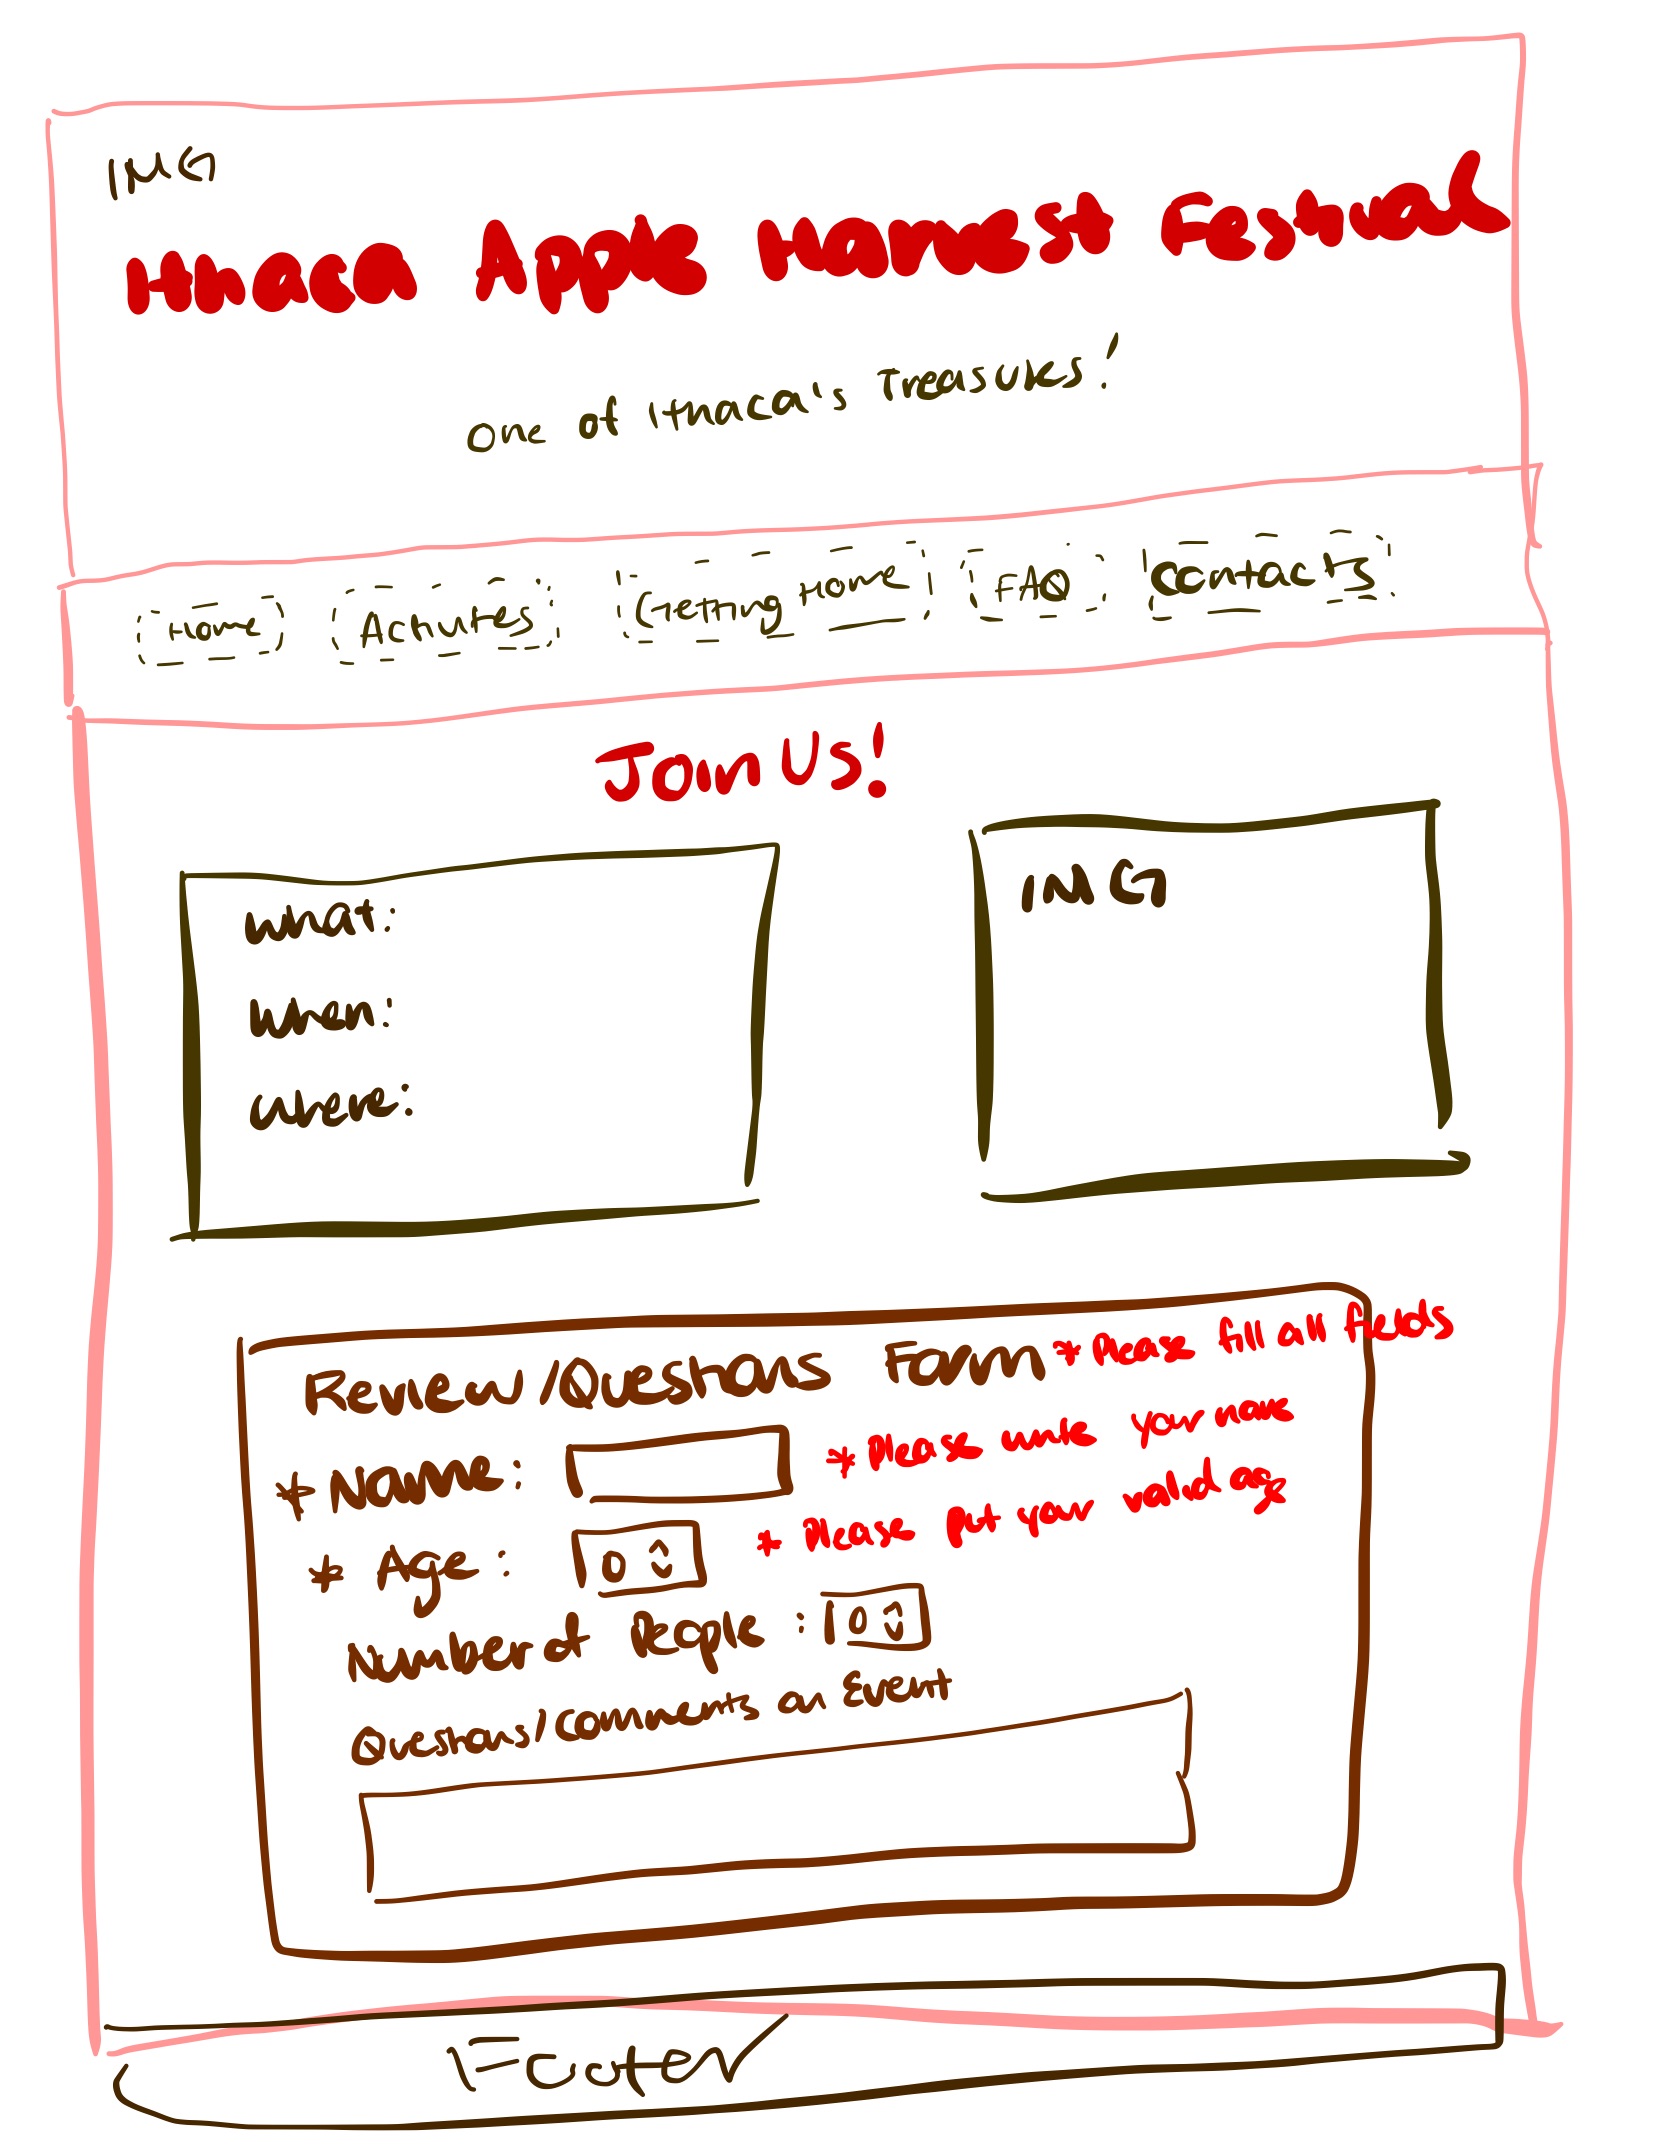 IMG
Ithaca Apple Harvest Festival
One of Ithaca's Treasures!
Home Activites Getting Home FAQ Contacts
Join Us!
What:
When:
Where:
IMG
Review/Questions Form * Please fill all fields
* Name: * Please write your name
* Age: 0 * Please put your valid age
Number of People: 0
Questions/Comments on Event
Footer